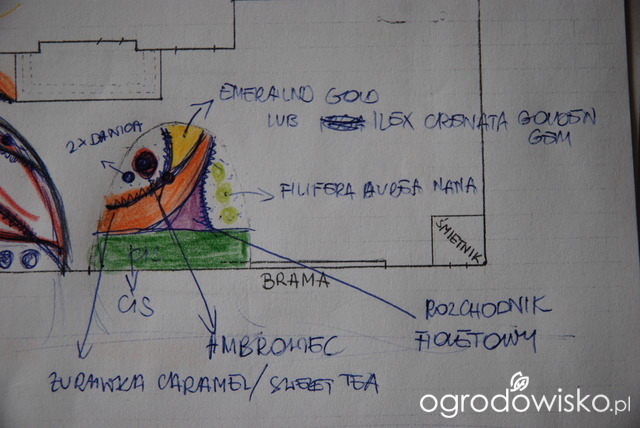 EMERALND GOLD
LUB ILEX CRENATA GOLDEN
GEM
2 X DANICA
FILIFERA AUREA NANA
ŚMIETNIK
BRAMA
CIS
ROZCHODNIK
FIOLETOWY
AMBROWIEC
ŻURAWKA CARAMEL/SWEET TEA
ogrodowisko.pl